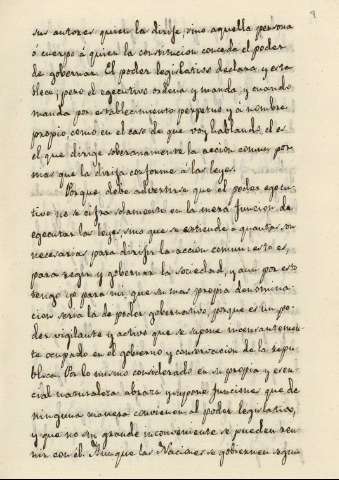 9
sus autores quien la dirije, sino aquella persona
ó cuerpo á quien la constitucion concede el poder
de gobernar. El poder legislativo declara y esta
blece; pero el egecutivo ordena y manda, y cuando
manda por establecimiento perpetuo y á nombre
propio, como en el caso de que voy hablando, él es
el que dirige soberanamente la accion comun por
mas que la dirija conforme á las leyes.
Porque debe advertirse que el poder egecu-
tivo no se cifra solamente en la mera funcion de
egecutar las leyes, sino que se extiende á quantas son
necesarias para dirijir la accion comun: esto es,
para regir y gobernar la sociedad, y aun por esto
tengo yo para mi, que su mas propia denomina-
cion seria la de poder gobernativo, porque es un po-
der vigilante y activo que se supone incesantemen-
te ocupado en el gobierno y conservacion de la repu-
blica. Por lo mismo considerado en su propia y esen-
cial naturaleza abraza y supone funciones que de
ninguna manera convienen al poder legislativo,
y que no sin grande inconveniente se pueden reu-
nir con él. Aunque las Naciones se gobiernen segun